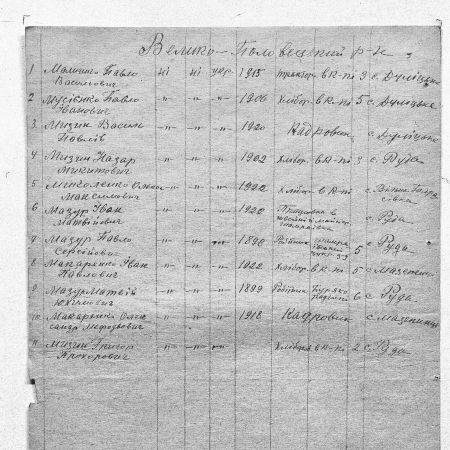 Велико-Половецкий р-н
1 Малишко Павло Васильович ні ні укр. 1915 трактор. в к-пі 3 с. Дуліцьке
2 Мусієнко Павло Іванович -"- -"- -"- 1906 хлібор. в к-пі 5 с. Дуліцьке
3 Мизин Василь Павлів -"- -"- -"- 1920 Кадровик с. Дуліцьке
4 Мизин Назар Микитович -"- -"- -"- 1902 хлібор. в к-пі 3 с. Руда
5 Миколенко Максимович -"- -"- -"- 1922 хлібор. в к-пі с.
6 Мазур Іван Матвійович -"- -"- -"- 1920 с. Руда
7 Мазур Павло Сергійович -"- -"- -"- 1890 Робітник 5 с. Руда
8 Макаренко Іван Павлович -"- -"- -"- 1922 хлібор. в к-пі 5 с. Мазепинці
9 Мазур Матвій -"- -"- -"- 1899 Робітник 6 с. Руда
10 Макаренко Олександр Мефодієвич -"- -"- -"- 1918 Кадровик с. Мазепинці
11 Мизин Григор Прохорович -"- -"- -"- хлібороб в к-пі 2 с. Руда